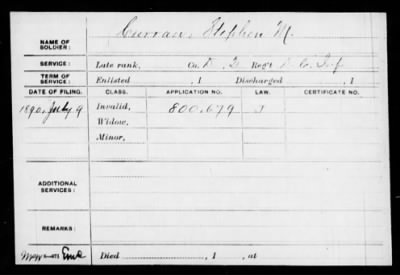 NAME OF SOLDIER: Curran, Stephen M.
SERVICE: Late rank, Co. Regt
TERM OF SERVICE: Enlisted , 1 Discharged , 1
DATE OF FILING. CLASS. APPLICATION NO. LAW. CERTIFICATE NO.
1890, July 9 Invalid, 800.679
Widow,
Minor,
ADDITIONAL SERVICES:
REMARKS:
Died , 1 , at